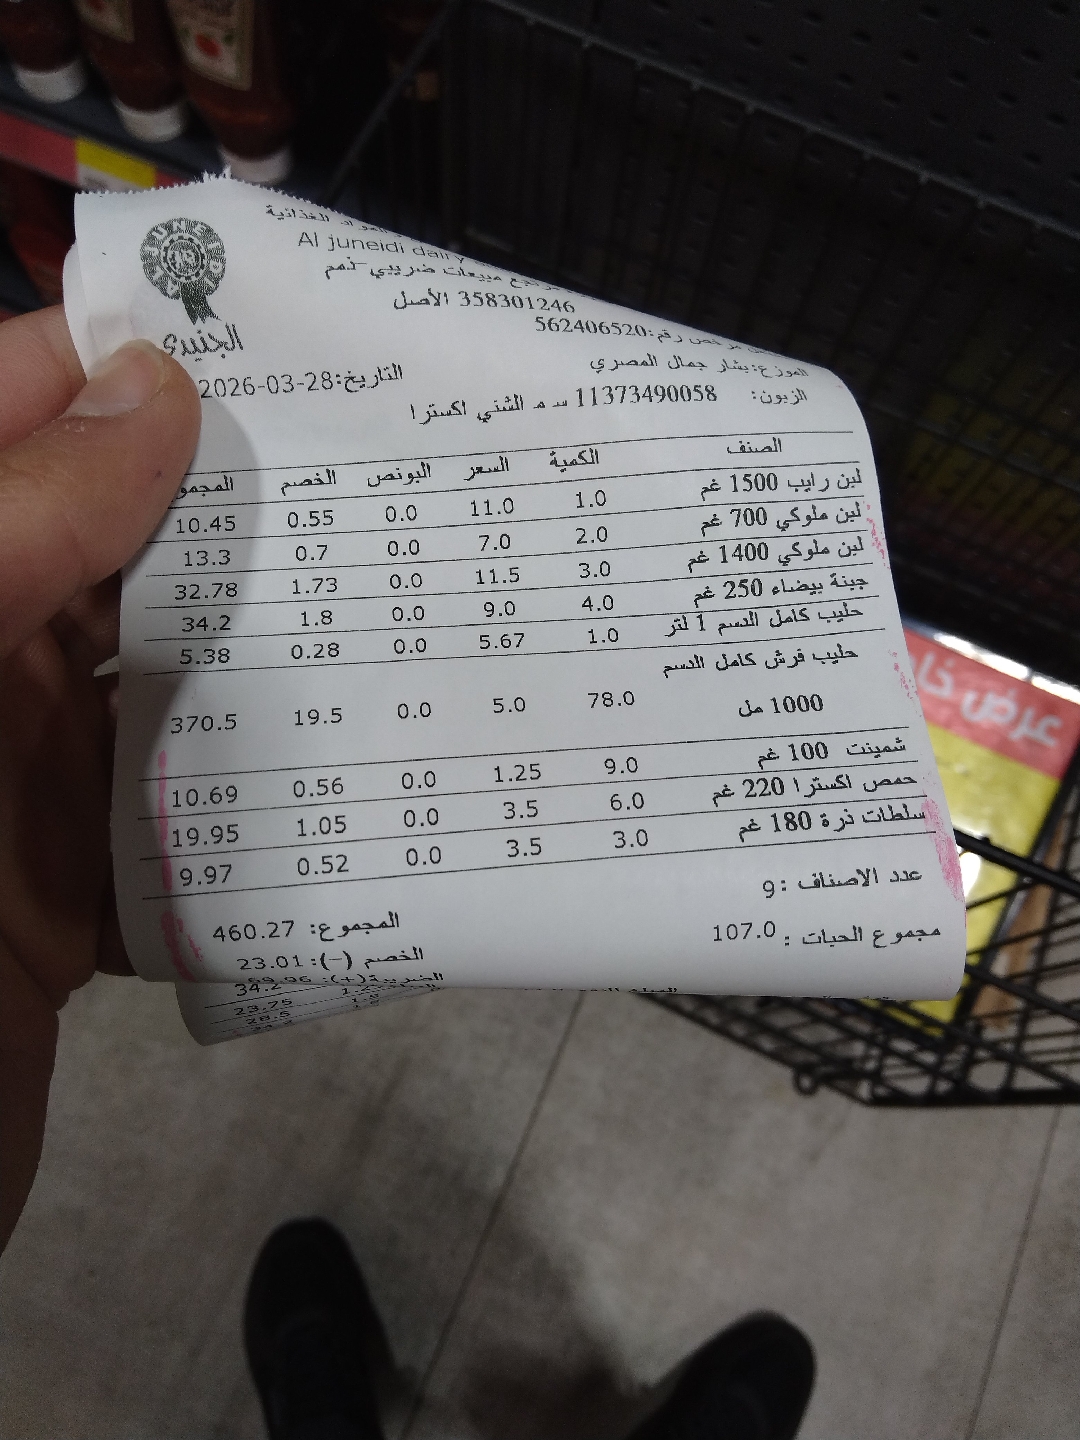 المواد الغذائية
Al juneidi dairy
مبيعات ضريبي
358301246 الأصل
رقم:562406520
الموزع:بشار جمال المصري
الجنيدي
التاريخ:2026-03-28
الزبون: 11373490058 س م الشني اكسترا
الصنف الكمية السعر البونص الخصم المجمو
لبن رايب 1500 غم 1.0 11.0 0.0 0.55 10.45
لبن ملوكي 700 غم 2.0 7.0 0.0 0.7 13.3
لبن ملوكي 1400 غم 3.0 11.5 0.0 1.73 32.78
جبنة بيضاء 250 غم 4.0 9.0 0.0 1.8 34.2
حليب كامل الدسم 1 لتر 1.0 5.67 0.0 0.28 5.38
حليب فرش كامل الدسم
1000 مل 78.0 5.0 0.0 19.5 370.5
شمينت 100 غم 9.0 1.25 0.0 0.56 10.69
حمص اكسترا 220 غم 6.0 3.5 0.0 1.05 19.95
سلطات ذرة 180 غم 3.0 3.5 0.0 0.52 9.97
عدد الاصناف :9
مجموع الحبات : 107.0 المجموع: 460.27
الخصم (-):23.01
الضريبة(+):
34.2
23.75
28.5
عرض خا